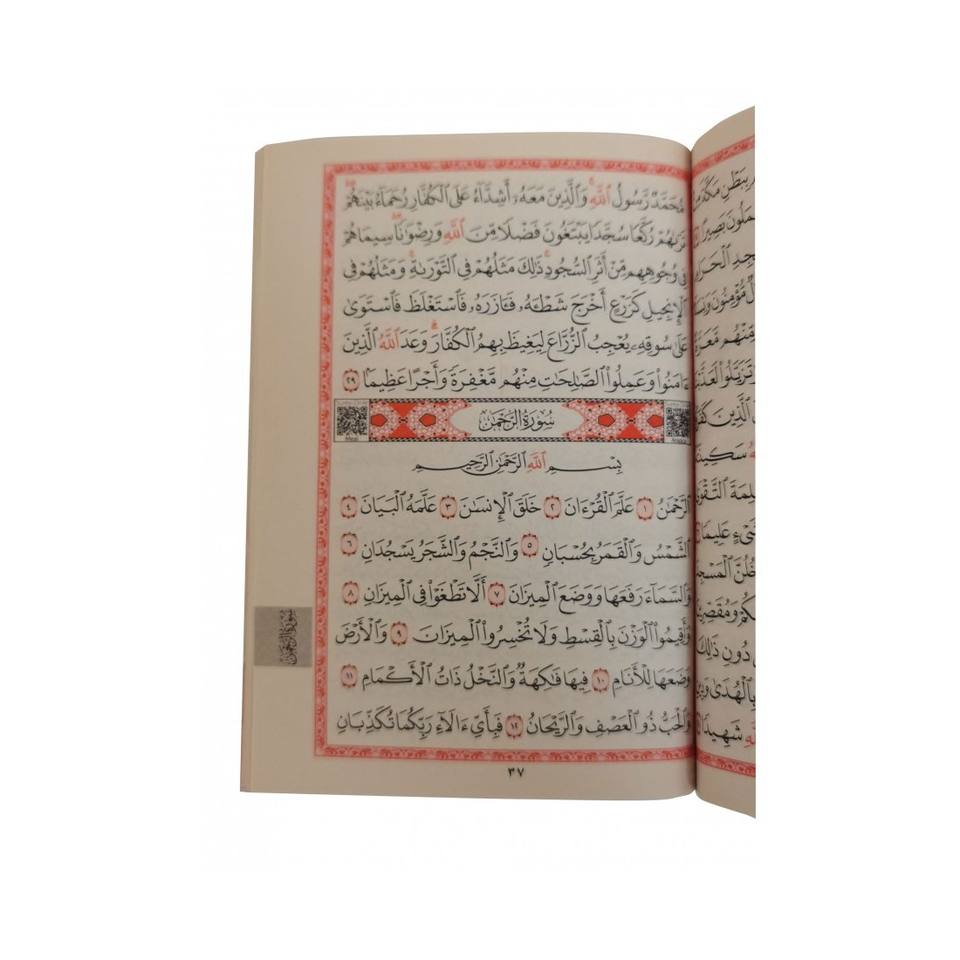 مُحَمَّدٌ رَسُولُ ٱللَّهِ وَٱلَّذِينَ مَعَهُۥٓ أَشِدَّآءُ عَلَى ٱلْكُفَّارِ رُحَمَآءُ بَيْنَهُمْ
تَرَىٰهُمْ رُكَّعًا سُجَّدًا يَبْتَغُونَ فَضْلًا مِّنَ ٱللَّهِ وَرِضْوَٰنًا سِيمَاهُمْ
فِى وُجُوهِهِم مِّنْ أَثَرِ ٱلسُّجُودِ ذَٰلِكَ مَثَلُهُمْ فِى ٱلتَّوْرَىٰةِ وَمَثَلُهُمْ فِى
ٱلْإِنجِيلِ كَزَرْعٍ أَخْرَجَ شَطْـَٔهُۥ فَـَٔازَرَهُۥ فَٱسْتَغْلَظَ فَٱسْتَوَىٰ
عَلَىٰ سُوقِهِۦ يُعْجِبُ ٱلزُّرَّاعَ لِيَغِيظَ بِهِمُ ٱلْكُفَّارَ وَعَدَ ٱللَّهُ ٱلَّذِينَ
ءَامَنُوا۟ وَعَمِلُوا۟ ٱلصَّٰلِحَٰتِ مِنْهُم مَّغْفِرَةً وَأَجْرًا عَظِيمًۢا ٢٩
سُورَةُ الرَّحْمَٰن
بِسْمِ ٱللَّهِ ٱلرَّحْمَٰنِ ٱلرَّحِيمِ
ٱلرَّحْمَٰنُ ١ عَلَّمَ ٱلْقُرْءَانَ ٢ خَلَقَ ٱلْإِنسَٰنَ ٣ عَلَّمَهُ ٱلْبَيَانَ ٤
ٱلشَّمْسُ وَٱلْقَمَرُ بِحُسْبَانٍ ٥ وَٱلنَّجْمُ وَٱلشَّجَرُ يَسْجُدَانِ ٦
وَٱلسَّمَآءَ رَفَعَهَا وَوَضَعَ ٱلْمِيزَانَ ٧ أَلَّا تَطْغَوْا۟ فِى ٱلْمِيزَانِ ٨
وَأَقِيمُوا۟ ٱلْوَزْنَ بِٱلْقِسْطِ وَلَا تُخْسِرُوا۟ ٱلْمِيزَانَ ٩ وَٱلْأَرْضَ
وَضَعَهَا لِلْأَنَامِ ١٠ فِيهَا فَٰكِهَةٌ وَٱلنَّخْلُ ذَاتُ ٱلْأَكْمَامِ ١١
وَٱلْحَبُّ ذُو ٱلْعَصْفِ وَٱلرَّيْحَانُ ١٢ فَبِأَىِّ ءَالَآءِ رَبِّكُمَا تُكَذِّبَانِ
٣٧
سُورَةُ الرَّحْمَٰن